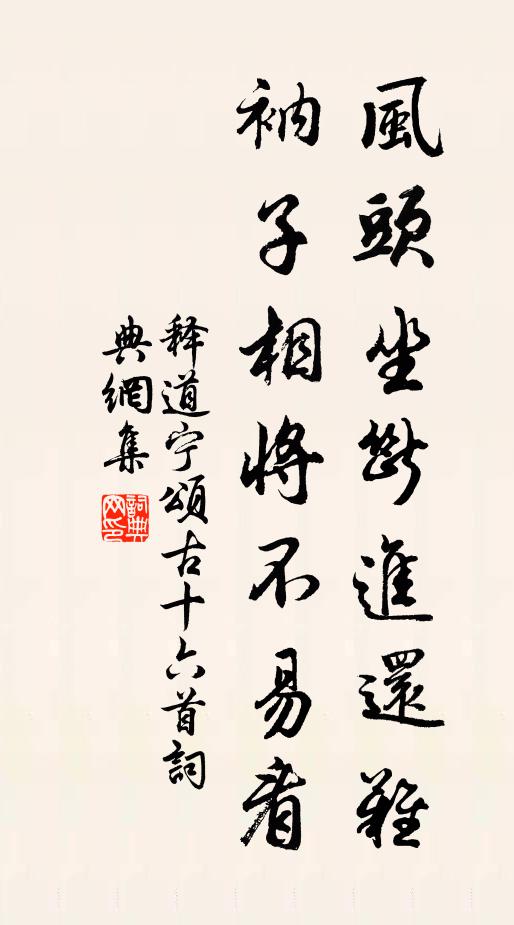 風頭坐斷進還難
衲子相將不易看
释道宁頌古十六首詞
典網集
詞典
网印